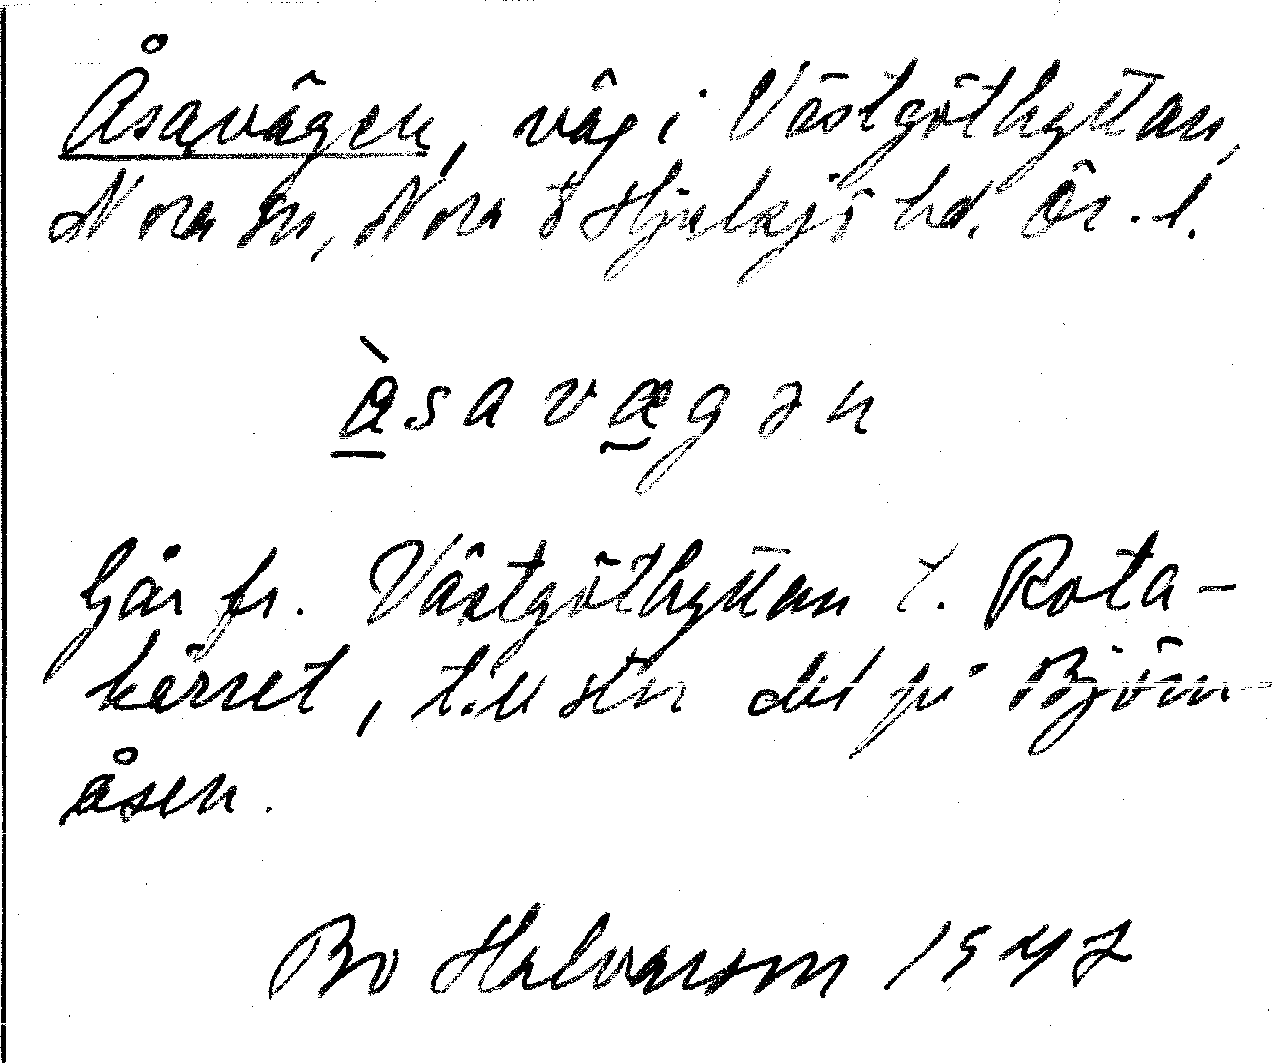 Åsavägen, väg i Västgöthyttan,
Nora sn, Nora o Hjulsjö hd. Ör. l.
åsavægən
Går fr. Västgöthyttan t. Rota-
kärret, till stor del på Björn-
åsen.
Bo Halvarson 1947